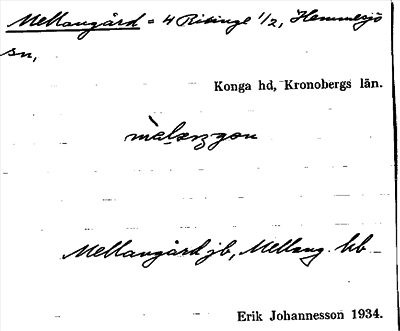 Mellangård = 4 Risinge 1/2, Hemmesjö
sn,
Konga hd, Kronobergs län.
Mellangård jb, Mellang. hb
Erik Johannesson 1934.